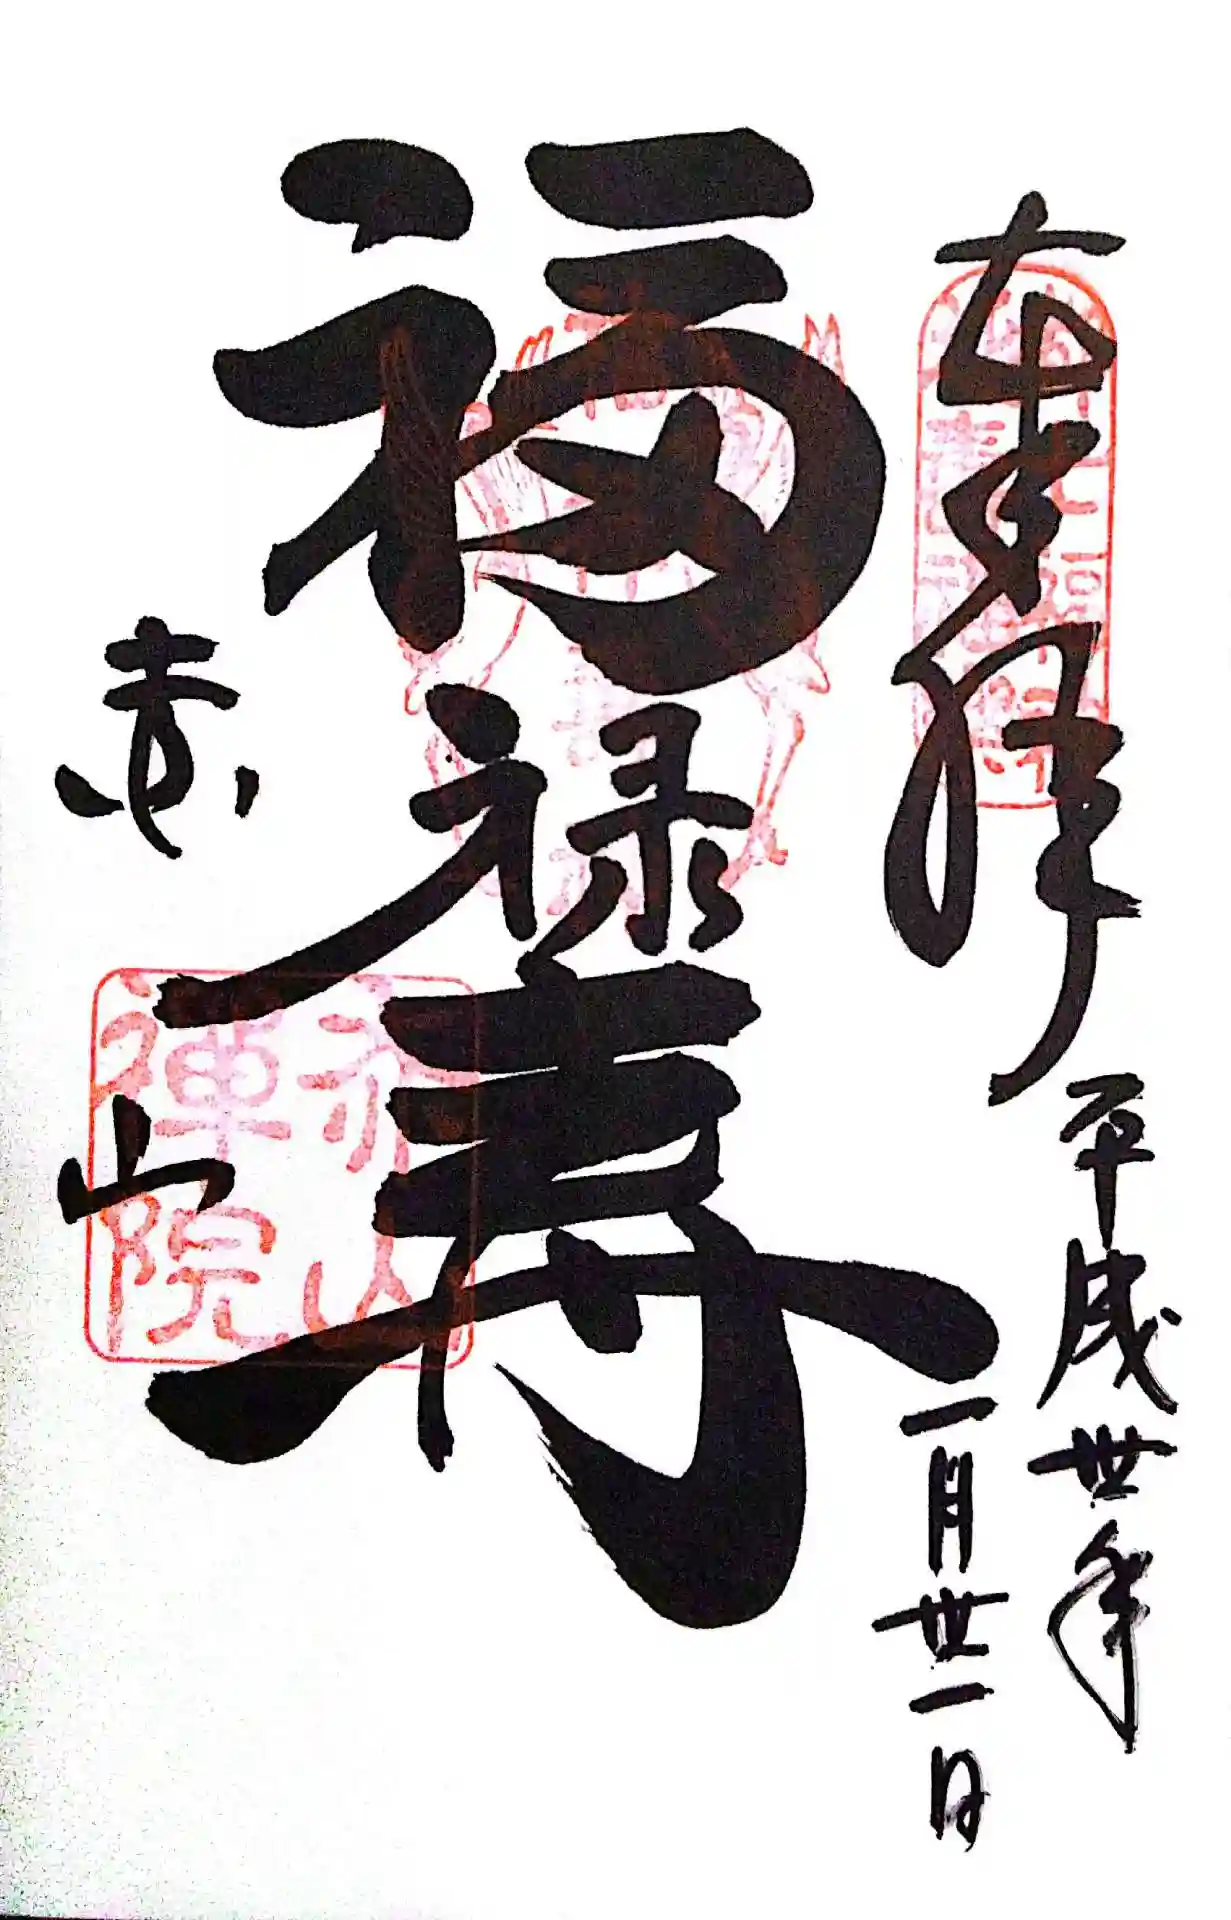 奉拝
平成丗年
一月丗一日
福禄寿
赤山
赤山
禅院